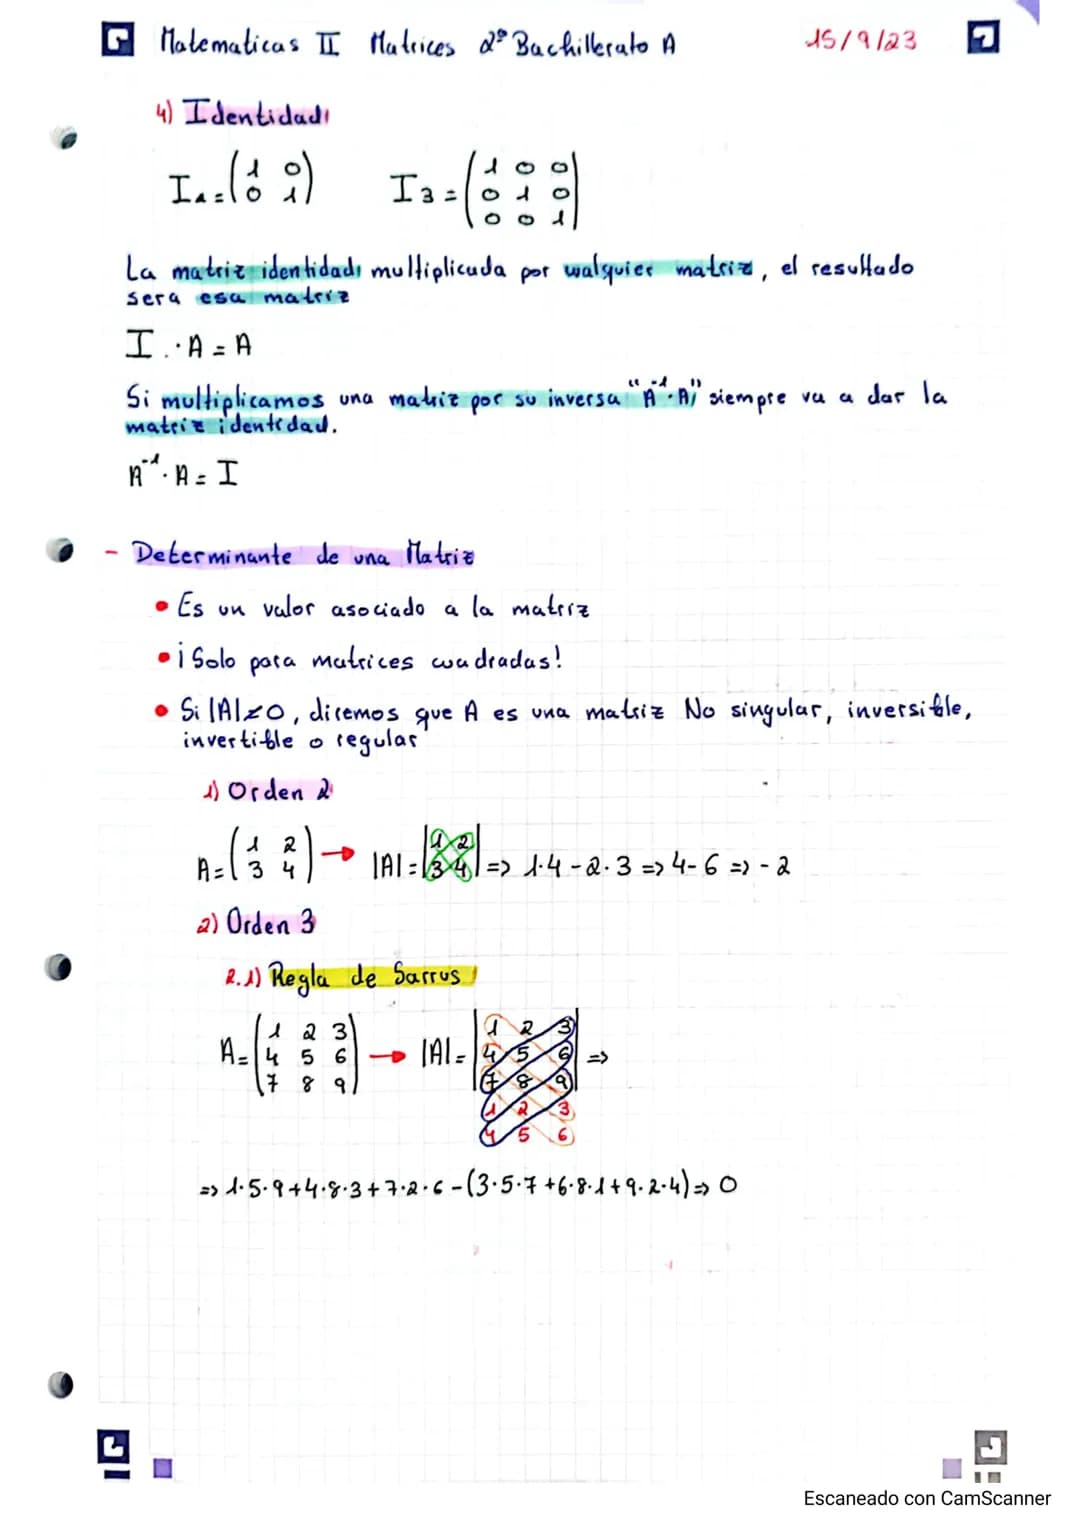 Matematicas II Matrices 2º Bachillerato A 15/9/23
4) Identidad
I₂=(1 0
0 1) I3=(1 0 0
0 1 0
0 0 1)
La matriz identidad multiplicada por cualquier matriz, el resultado
sera esa matriz
I · A = A
Si multiplicamos una matriz por su inversa "A⁻¹·A" siempre va a dar la
matriz identidad.
A⁻¹·A = I
- Determinante de una Matriz
• Es un valor asociado a la matriz
• ¡Solo para matrices cuadradas!
• Si |A|≠0, diremos que A es una matriz No singular, inversible,
invertible o regular
1) Orden 2
A=(1 2
3 4) → |A|=|1 2
3 4| => 1·4-2·3 => 4-6 => -2
2) Orden 3
2.1) Regla de Sarrus
A=(1 2 3
4 5 6
7 8 9) → |A|=|1 2 3
4 5 6
7 8 9| =>
1 2 3
4 5 6
=> 1·5·9+4·8·3+7·2·6-(3·5·7+6·8·1+9·2·4)=> 0
Escaneado con CamScanner